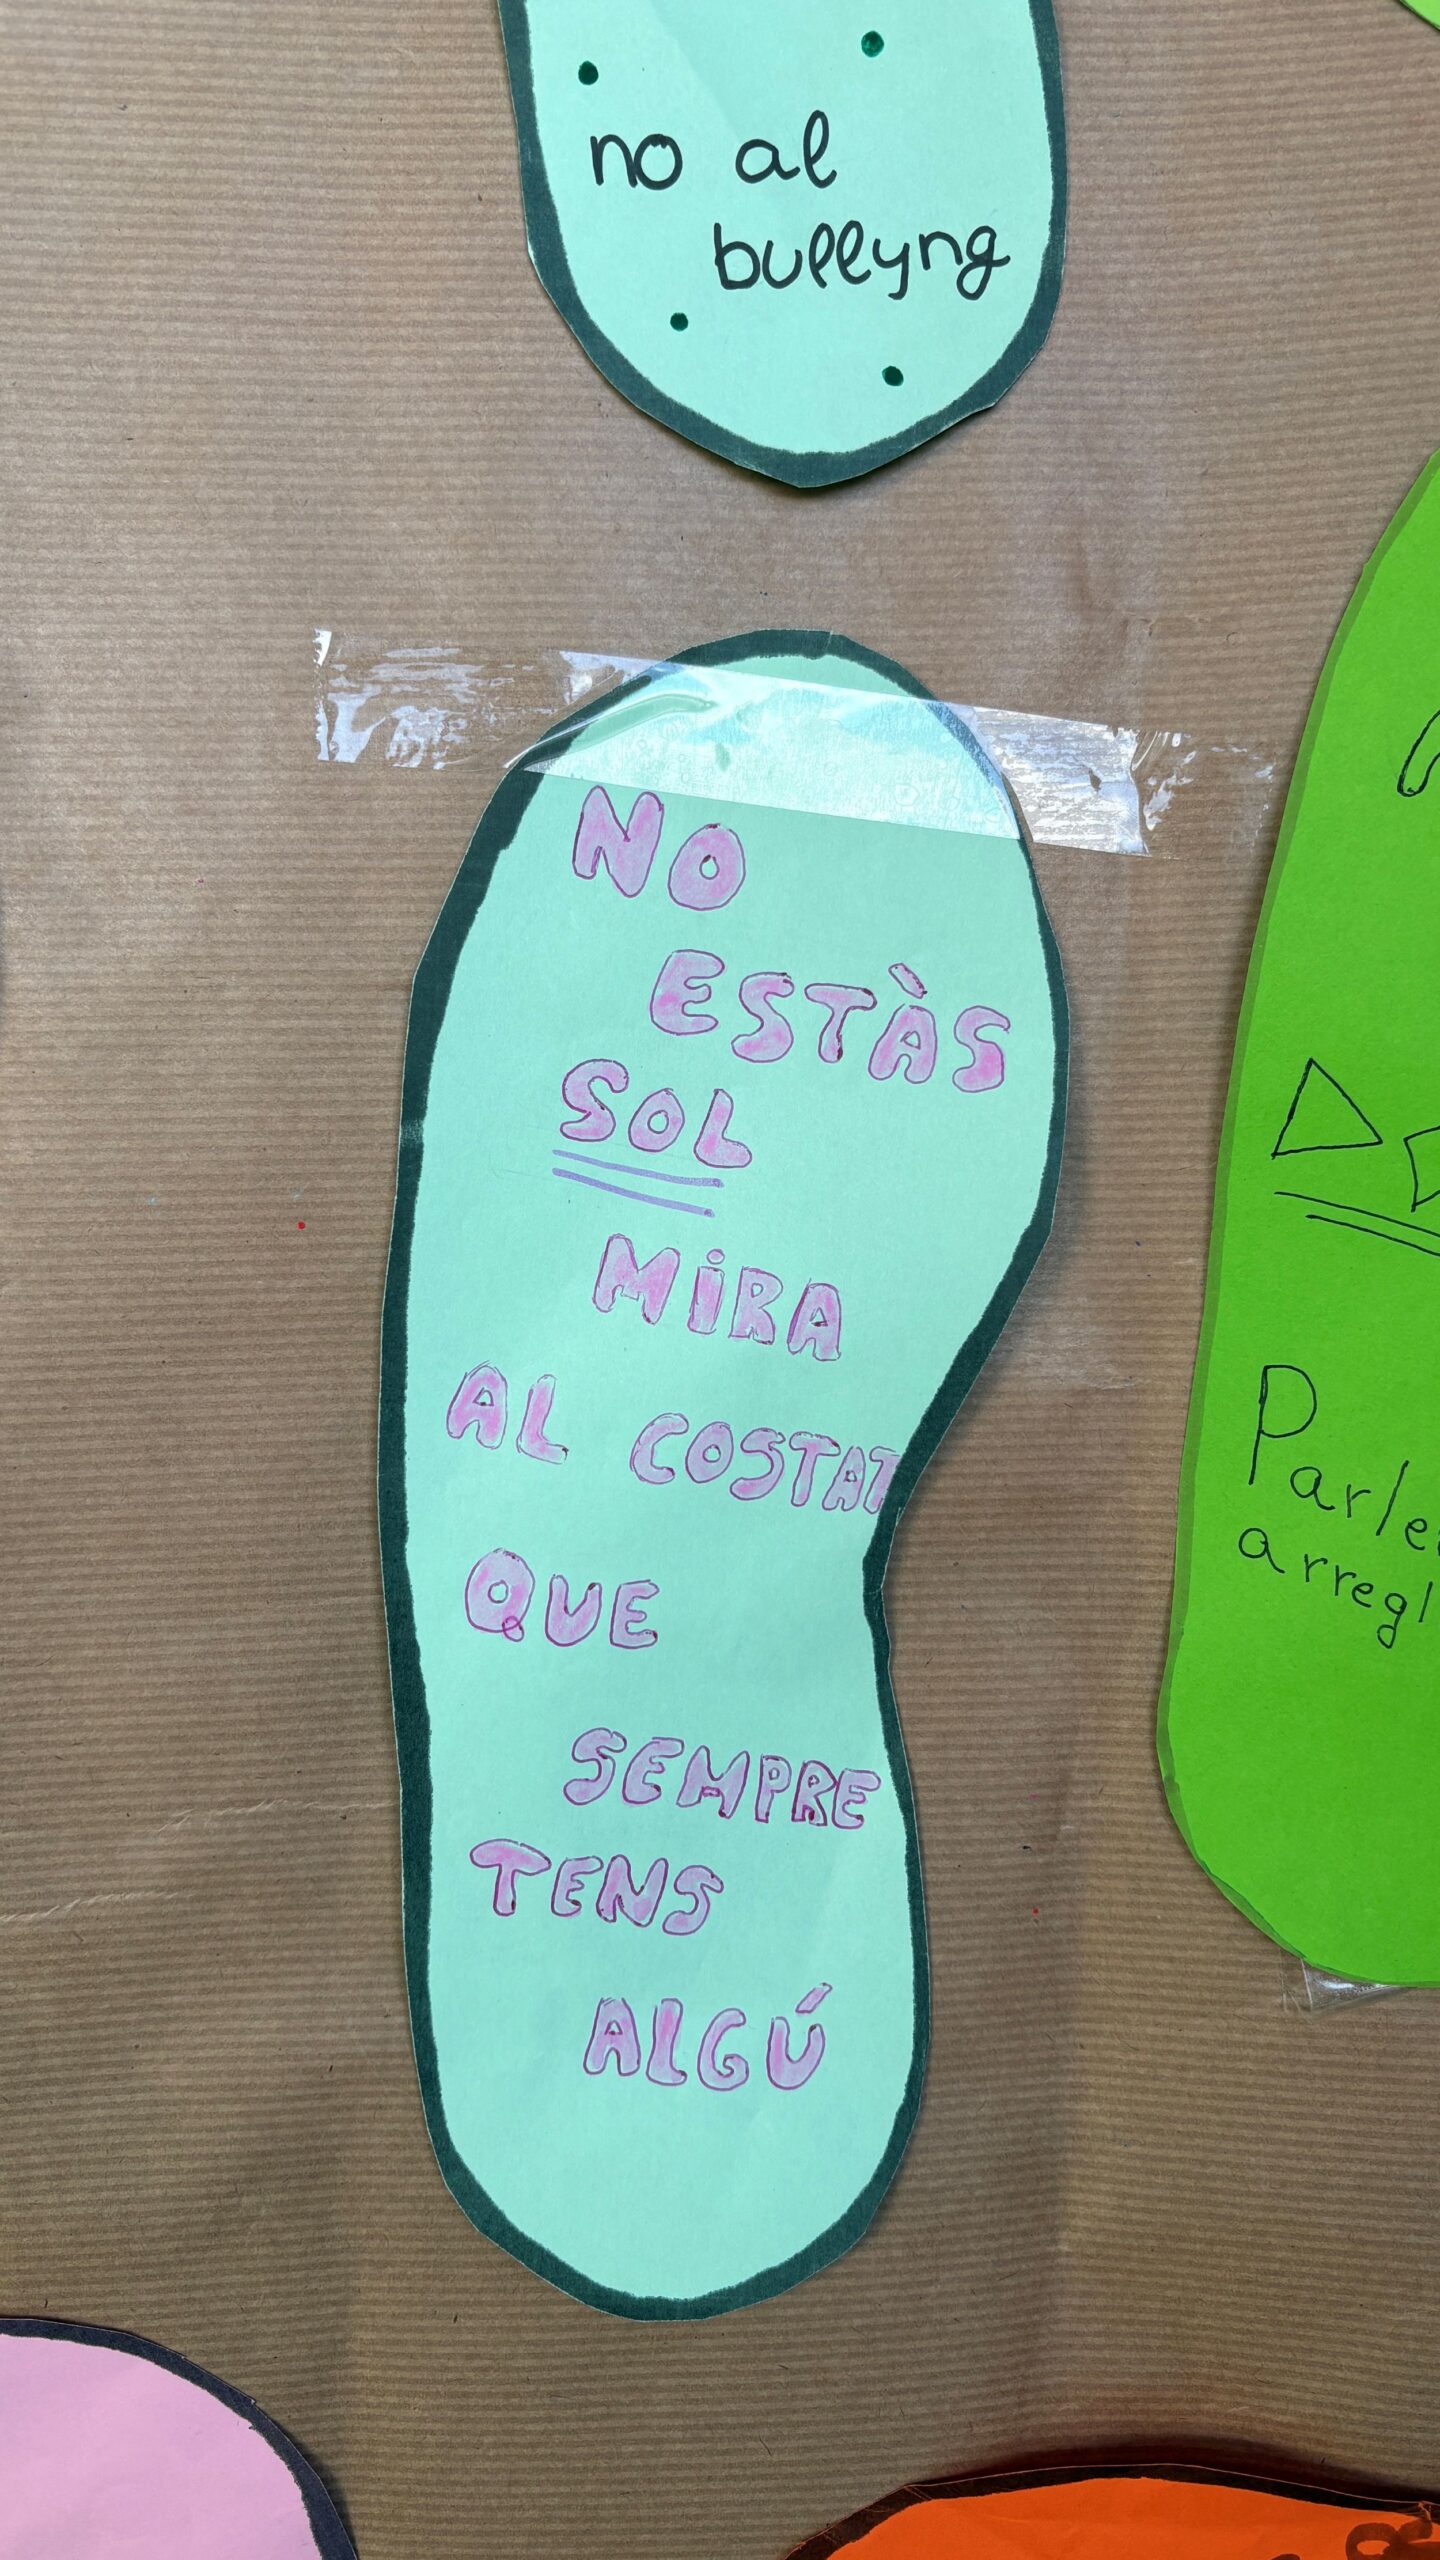 no al
bullyng
NO
ESTÀS
SOL
MiRA
AL COSTAT
QUE
SEMPRE
TENS
ALGÚ